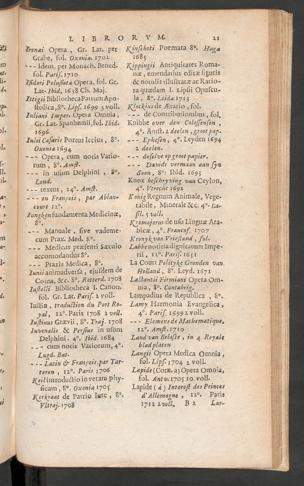 LIBRORUM. 21
Irenæi Opera, Gr. Lat. per
Grabe, fol. Oxonia. 1702
--- Idem, per Monach. Bened.
fol. Paris. 1710
Isidori Pelusiotæ Opera, fol. Gr.
Lat. Ibid. 1638 Ch. Maj.
Ittigii Bibliotheca Patrum Apo-
stolica, 8°. Lips. 1699 3 voll.
Juliani Imper. Opera Omnia,
Gr. Lat. Spanhemii, fol. Ibid.
1696
Julii Cæsaris Portus Iccius, 8°.
Oxonia 1694
--- Opera, cum notis Vario-
rum, 8°. Amst.
--- in usum Delphini, 8°.
Lond.
--- textent, 24°. Amst.
--- en François, par Ablan-
court 12°.
Jungken fundamenta Medicinæ,
8°.
--- Manuale, sive vademe-
cum Prax. Med. 8°.
--- Medicus præsenti sæculo
accomodandus 8°.
--- Praxis Medica, 8°.
Junii animadversa, ejusdem de
Coma, &c. 8°. Rotterd. 1708
Justelli Bibliotheca J. Canon.
fol. Gr. Lat. Paris. 2 voll.
Justin, traduction du Port Ro-
yal, 12°. Paris 1708 2 voll.
Justinus Grævii, 8°. Traj. 1708
Juvenalis & Persius in usum
Delphini, 4°. Ibid. 1684
--- cum notis Variorum, 4°.
Lugd. Bat.
--- Latin & François, par Tar-
teron, 12°. Paris 1706
Keil introductio in veram phy-
sicam, 8°. Oxonia 1705
Kerkraet de Patrio Jure, 8°.
Ultraj. 1708
Kinschoti Poëmata 8°. Haga
1685
Kippingii Antiquitates Roma-
næ, emendatius editæ figuris
& notulis illustratæ ac Ratio-
ra quædam J. Lipsii Opuscu-
la, 8°. Leida 1713
Klockius de Ærario, fol.
--- de Contributionibus, fol.
Knibbe over den Colossensen,
4°. Amst. 2 deelen, groot pap.
--- Ephesen, 4°. Leyden 1694
2 deelen.
--- deselve op groot papier.
--- Davids vermaan aan syn
Soon, 8°. Ibid. 1695
Knox beschryving van Ceylon,
4°. Utrecht 1692
Konig Regnum Animale, Vege-
tabile, Minerale &c. 4°. Ba-
sil. 5 voll.
Kromajerus de usu Linguæ Arab-
bicæ, 4°. Francof. 1707
Kronyk van Vriesland, fol.
Labbe notitia dignitatum Impe-
rii, 12°. Paris. 1651
La Court Politycke Gronden van
Holland, 8°. Leyd. 1671
Lactantii Firmiani Opera Om-
nia, 8°. Cantabrig.
Lampadius de Republica, 8°.
Lamy Harmonia Evangelica,
4°. Paris. 1699 2 voll.
--- Elemens de Mathematique,
12°. Amst. 1710
Land van Belofte, in 4 Royale
blad platen
Langii Opera Medica Omnia,
fol. Lips. 1704 2 voll.
Lapide (Corn. a) Opera Omnia,
fol. Antw. 1705 10. voll.
Lapide (à) Interest des Princes
d'Allemagne, 12°. Paris
1712 2 voll. B 2 Lar-